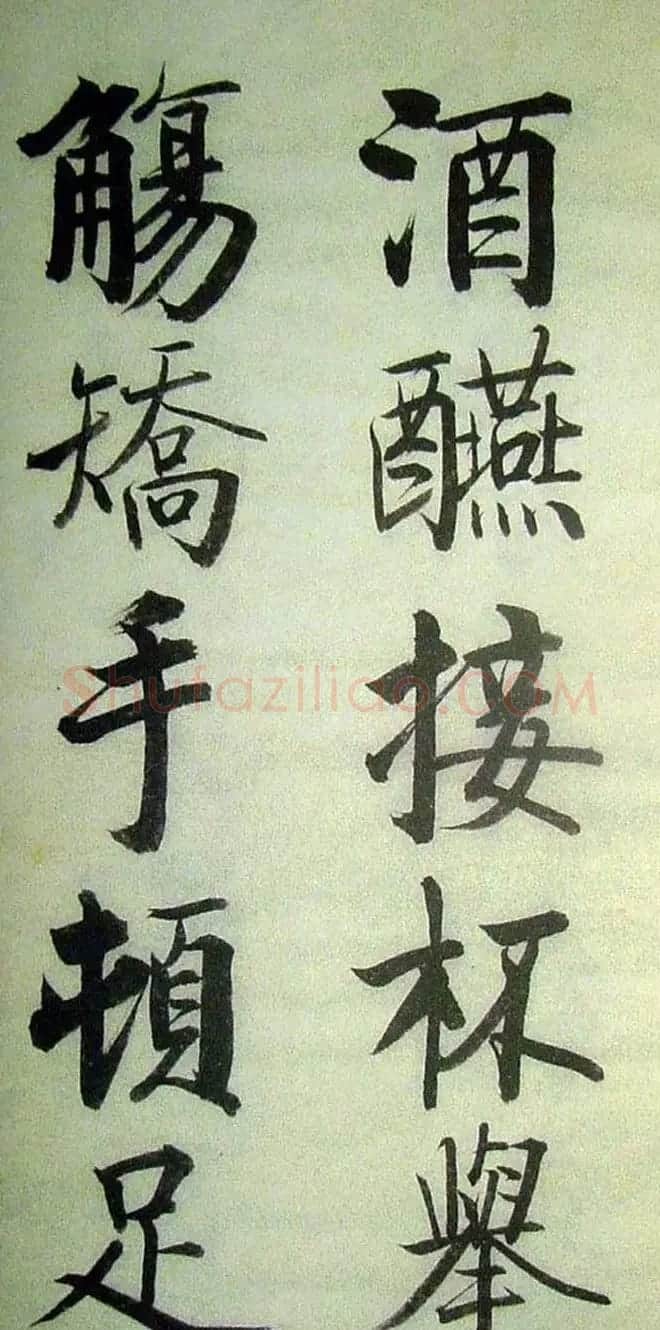 酒醼接杯舉
觴矯手頓足
Shufaziliao.COM